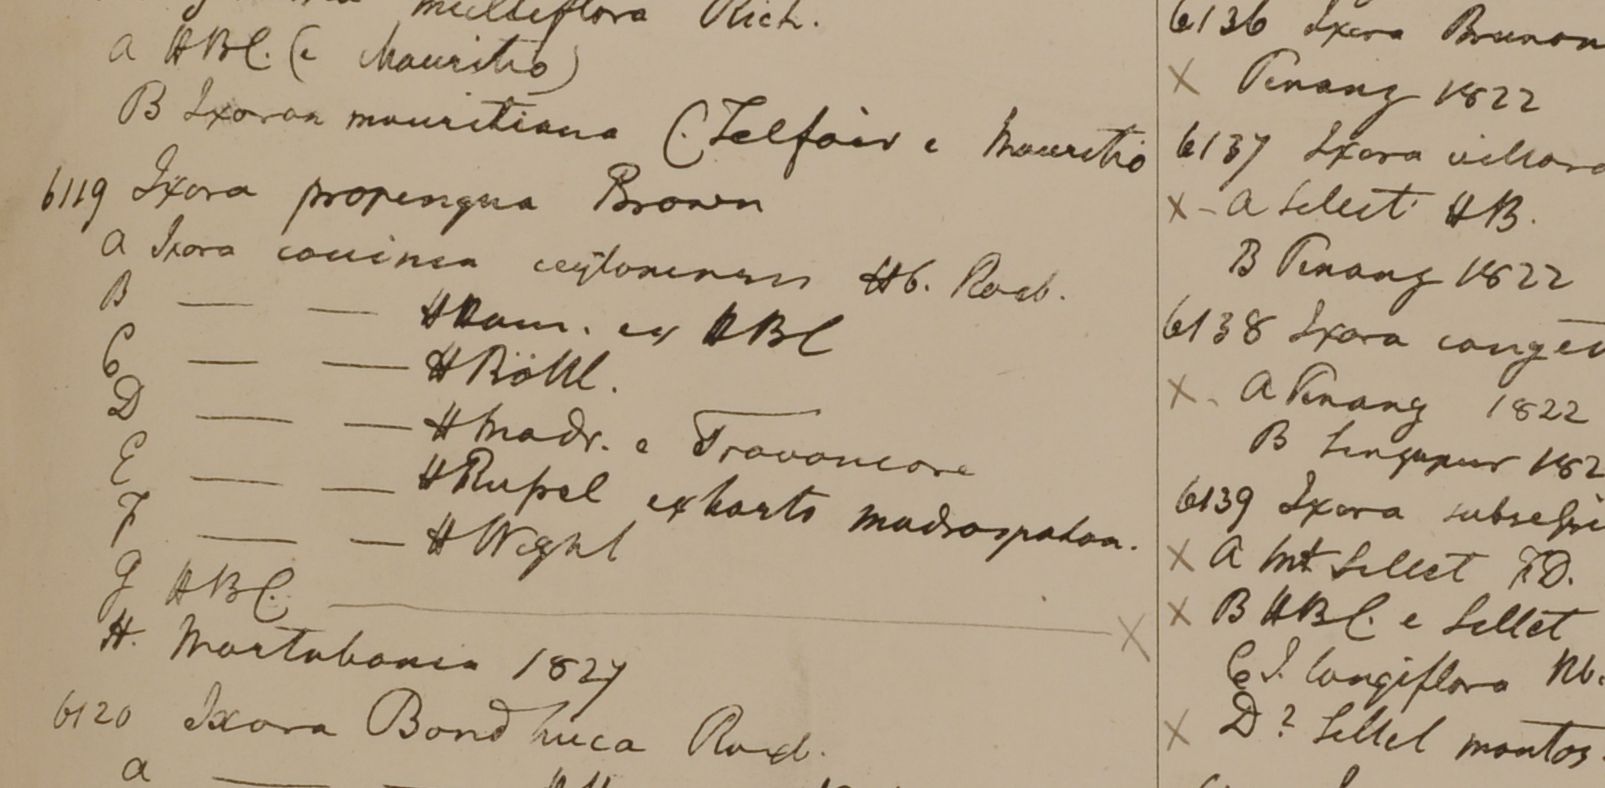 multiflora Rich.
A HBC. (e Mauritio)
B Ixoran mauritiana (Telfair e Mauritio
6119 Ixora propingua Brown
A Ixora coccinea ceylonensis Hb. Roxb.
B — — HHam. ex HBC
C — — HRöttl.
D — — HMadr. e Travancore
E — — HRussel ex horto madraspatan.
F — — HWight
G HBC. — X
H. Martabania 1827
6120 Ixora Bandhuca Roxb.
a —
6136 Ixora Brunon
X Penang 1822
6137 Ixora villosa
X - A Sillet HB.
B Penang 1822
6138 Ixora conge
X - A Penang 1822
B Singapur 182
6139 Ixora subsessi
X A Mt Sillet FD.
X B HBC. e Sillet
C I. longiflora Rb.
X D? Sillet montos